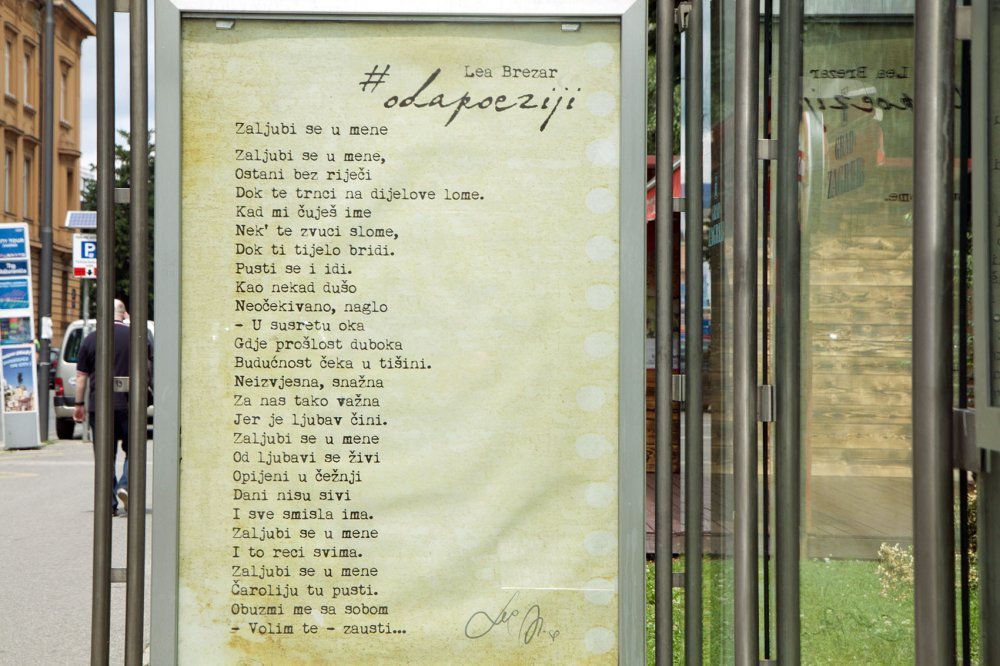 Lea Brezar
#odapoeziji
Zaljubi se u mene
Zaljubi se u mene,
Ostani bez riječi
Dok te trnci na dijelove lome.
Kad mi čuješ ime
Nek' te zvuci slome,
Dok ti tijelo bridi.
Pusti se i idi.
Kao nekad dušo
Neočekivano, naglo
- U susretu oka
Gdje prošlost duboka
Budućnost čeka u tišini.
Neizvjesna, snažna
Za nas tako važna
Jer je ljubav čini.
Zaljubi se u mene
Od ljubavi se živi
Opijeni u čežnji
Dani nisu sivi
I sve smisla ima.
Zaljubi se u mene
I to reci svima.
Zaljubi se u mene
Čaroliju tu pusti.
Obuzmi me sa sobom
- Volim te - zausti...
P
GRAD
ZAGREB